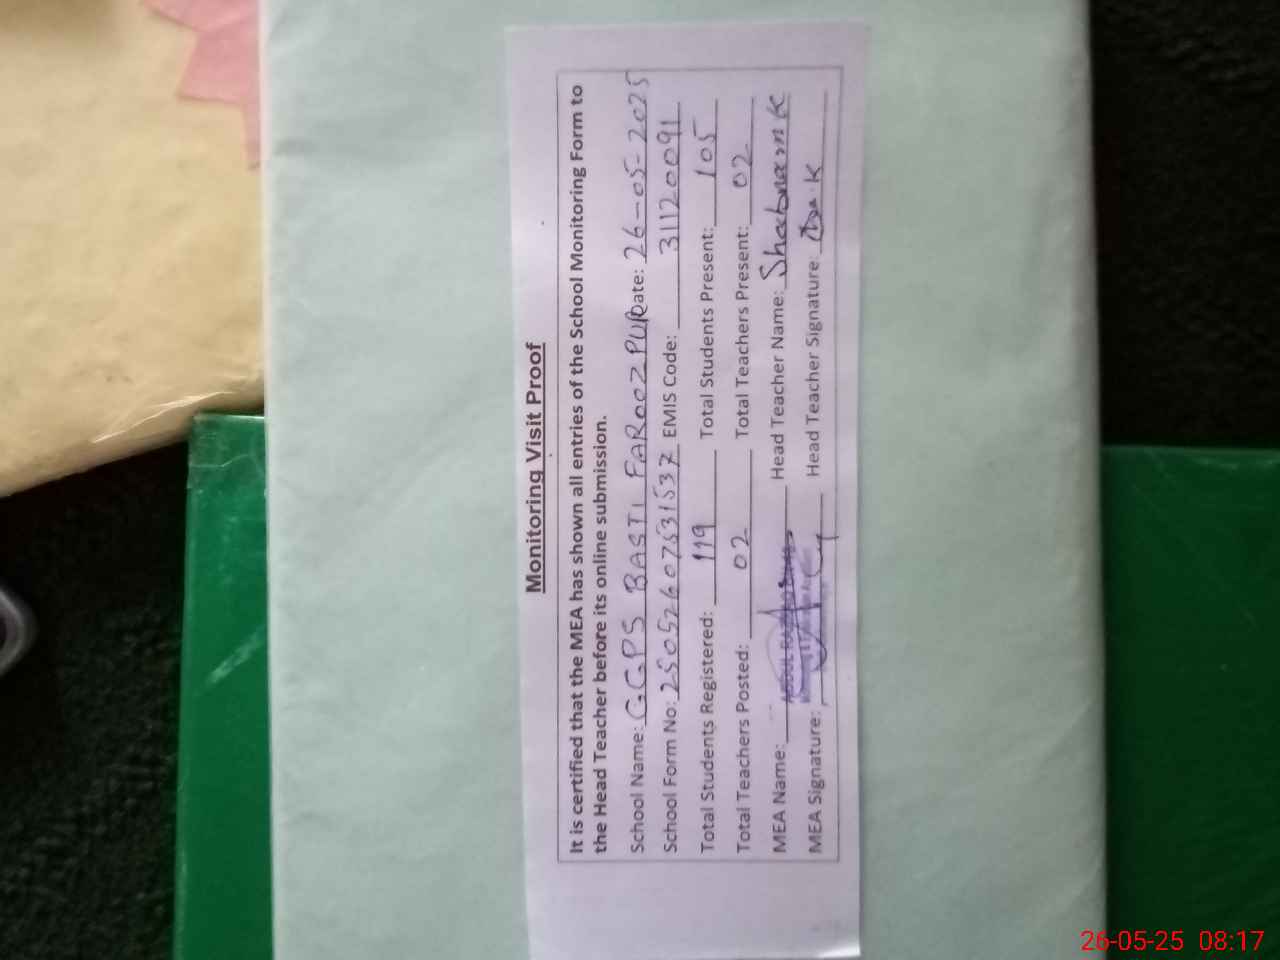 Monitoring Visit Proof
It is certified that the MEA has shown all entries of the School Monitoring Form to
the Head Teacher before its online submission.
School Name: GGPS BASTI FAROOZ PUR Date: 26-05-2025
School Form No: 25052607531537 EMIS Code: 31120091
Total Students Registered: 119 Total Students Present: 105
Total Teachers Posted: 02 Total Teachers Present: 02
MEA Name: ABDUL Head Teacher Name: Shabnam K
MEA Signature: Head Teacher Signature:
26-05-25 08:17